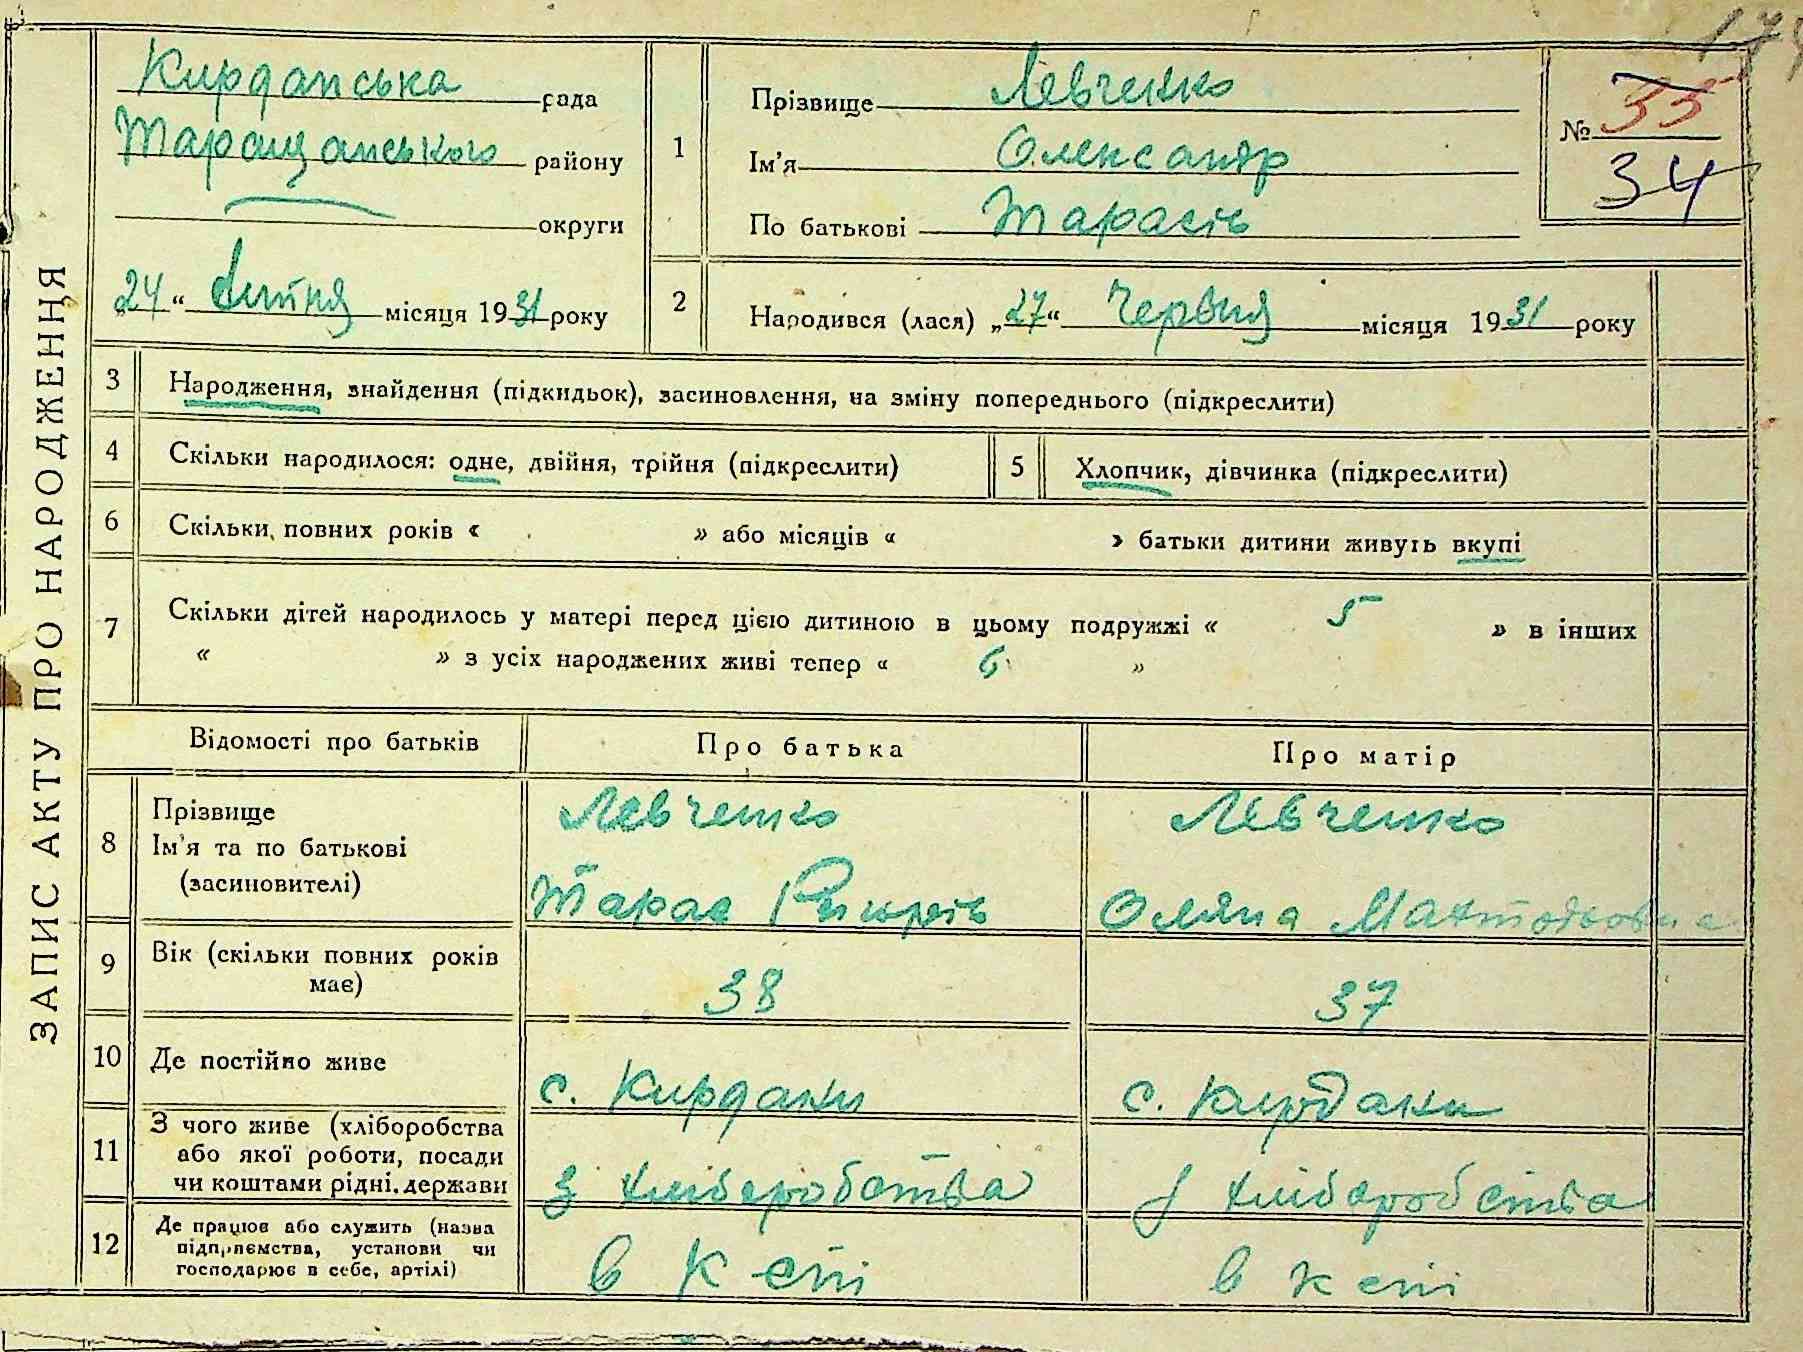 ЗАПИС АКТУ ПРО НАРОДЖЕННЯ
Кирданська рада
Таращанського району
округи
„24“ липня місяця 1931 року
1
Прізвище Левченко
Ім'я Олександр
По батькові Тарасів
№ 35
34
2
Народився (лася) „27“ Червня місяця 1931 року
3
Народження, знайдення (підкидьок), засиновлення, на зміну попереднього (підкреслити)
4
Скільки народилося: одне, двійня, трійня (підкреслити)
5
Хлопчик, дівчинка (підкреслити)
6
Скільки повних років « » або місяців « » батьки дитини живуть вкупі
7
Скільки дітей народилось у матері перед цією дитиною в цьому подружжі « 5 » в інших
« » з усіх народжених живі тепер « 6 »
Відомості про батьків
Про батька
Про матір
8
Прізвище
Ім'я та по батькові
(засиновителі)
Левченко
Тарас
Левченко
Оляна
9
Вік (скільки повних років
має)
38
37
10
Де постійно живе
с. Кирдани
с. Кирдани
11
З чого живе (хліборобства
або якої роботи, посади
чи коштами рідні, держави
з хліборобства
з хліборобства
12
Де працює або служить (назва
підприємства, установи чи
господарює в себе, артілі)
в к спі
в к спі